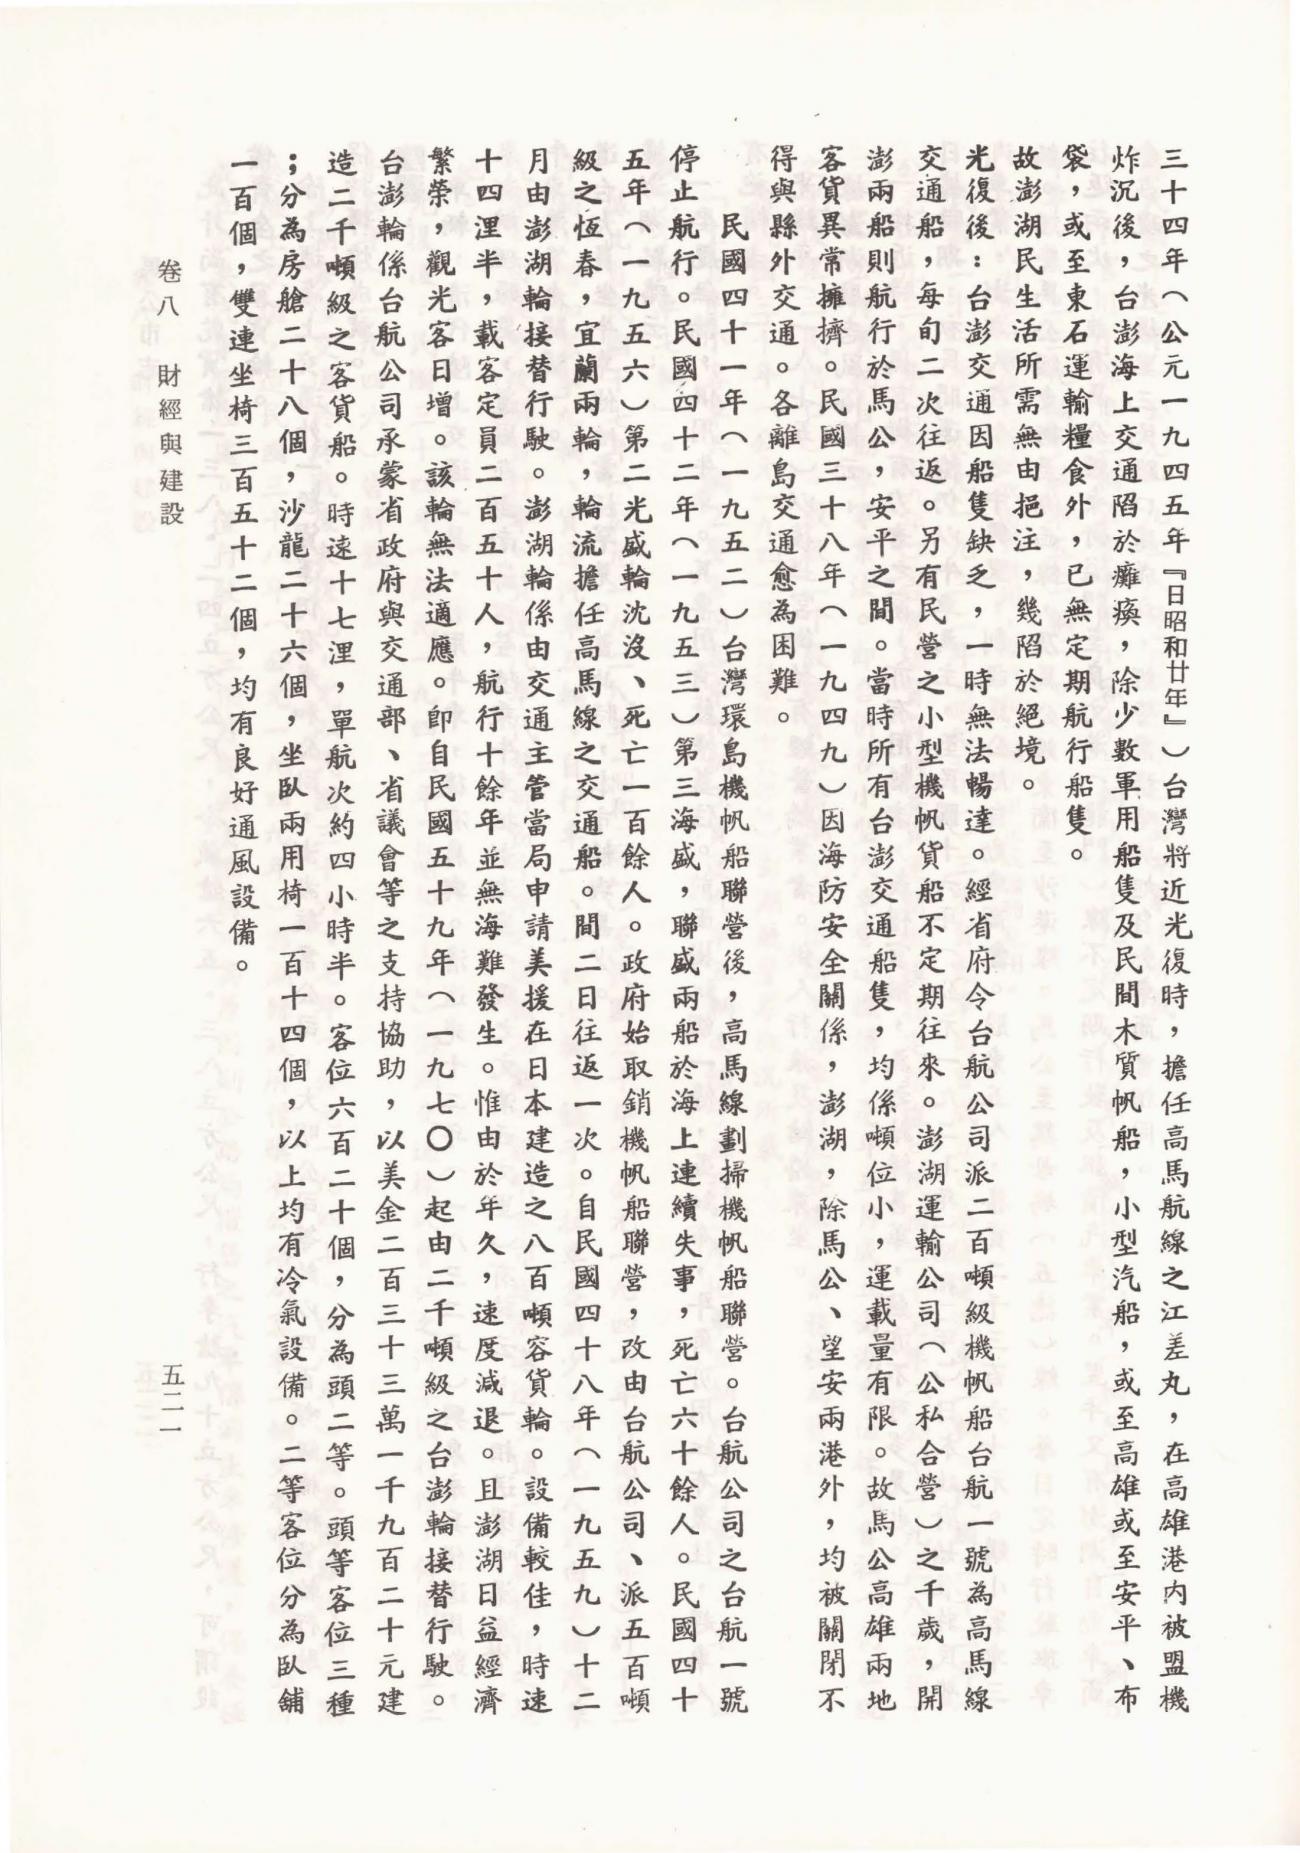 三十四年（公元一九四五年『日昭和廿年』）台灣將近光復時，擔任高馬航線之江差丸，在高雄港內被盟機
炸沉後，台澎海上交通陷於癱瘓，除少數軍用船隻及民間木質帆船，小型汽船，或至高雄或至安平、布
袋，或至東石運輸糧食外，已無定期航行船隻。
故澎湖民生活所需無由挹注，幾陷於絕境。
光復後：台澎交通因船隻缺乏，一時無法暢達。經省府令台航公司派二百噸級機帆船台航一號為高馬線
交通船，每旬二次往返。另有民營之小型機帆貨船不定期往來。澎湖運輸公司（公私合營）之千歲，開
澎兩船則航行於馬公，安平之間。當時所有台澎交通船隻，均係噸位小，運載量有限。故馬公高雄兩地
客貨異常擁擠。民國三十八年（一九四九）因海防安全關係，澎湖，除馬公、望安兩港外，均被關閉不
得與縣外交通。各離島交通愈為困難。
民國四十一年（一九五二）台灣環島機帆船聯營後，高馬線劃掃機帆船聯營。台航公司之台航一號
停止航行。民國四十二年（一九五三）第三海盛，聯盛兩船於海上連續失事，死亡六十餘人。民國四十
五年（一九五六）第二光盛輪沈沒、死亡一百餘人。政府始取銷機帆船聯營，改由台航公司、派五百噸
級之恆春，宜蘭兩輪，輪流擔任高馬線之交通船。間二日往返一次。自民國四十八年（一九五九）十二
月由澎湖輪接替行駛。澎湖輪係由交通主管當局申請美援在日本建造之八百噸容貨輪。設備較佳，時速
十四浬半，載客定員二百五十人，航行十餘年並無海難發生。惟由於年久，速度減退。且澎湖日益經濟
繁榮，觀光客日增。該輪無法適應。卽自民國五十九年（一九七〇）起由二千噸級之台澎輪接替行駛。
台澎輪係台航公司承蒙省政府與交通部、省議會等之支持協助，以美金二百三十三萬一千九百二十元建
造二千噸級之客貨船。時速十七浬，單航次約四小時半。客位六百二十個，分為頭二等。頭等客位三種
；分為房艙二十八個，沙龍二十六個，坐臥兩用椅一百十四個，以上均有冷氣設備。二等客位分為臥舖
一百個，雙連坐椅三百五十二個，均有良好通風設備。
卷八　財經與建設
五二一